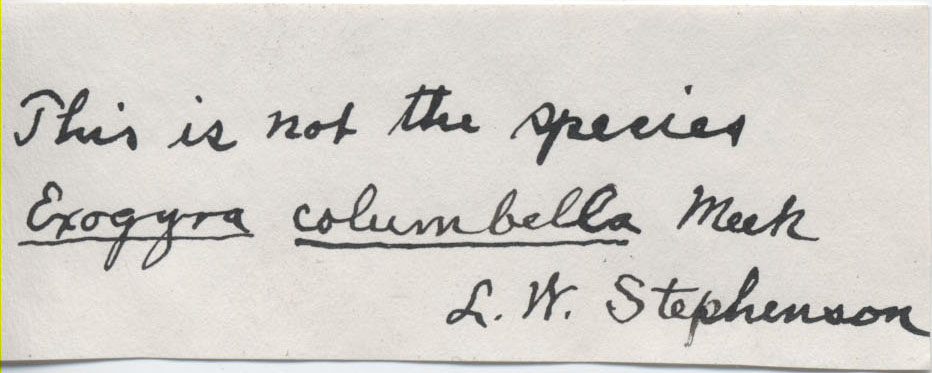 This is not the species
Exogyra columbella Meek
L. W. Stephenson